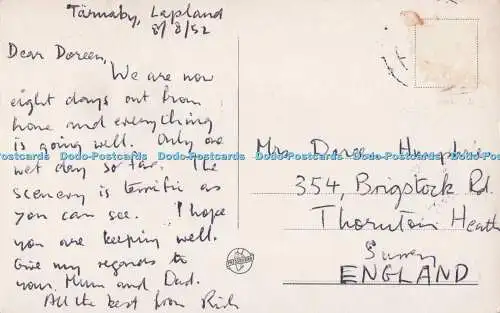 Tärnaby, Lapland
8/8/52
Dear Doreen,
We are now
eight days out from
home and everything
is going well. Only one
wet day so far. The
scenery is terrific as
you can see. I hope
you are keeping well.
Give my regards to
your Mum and Dad.
All the best from Rich
Mrs Doreen Humphries
354, Brigstock Rd.
Thornton Heath
Surrey
ENGLAND
Dodo-Postcards Dodo-Postcards Dodo-Postcards Dodo-Postcards Dodo-Postcards Dodo-Postcards